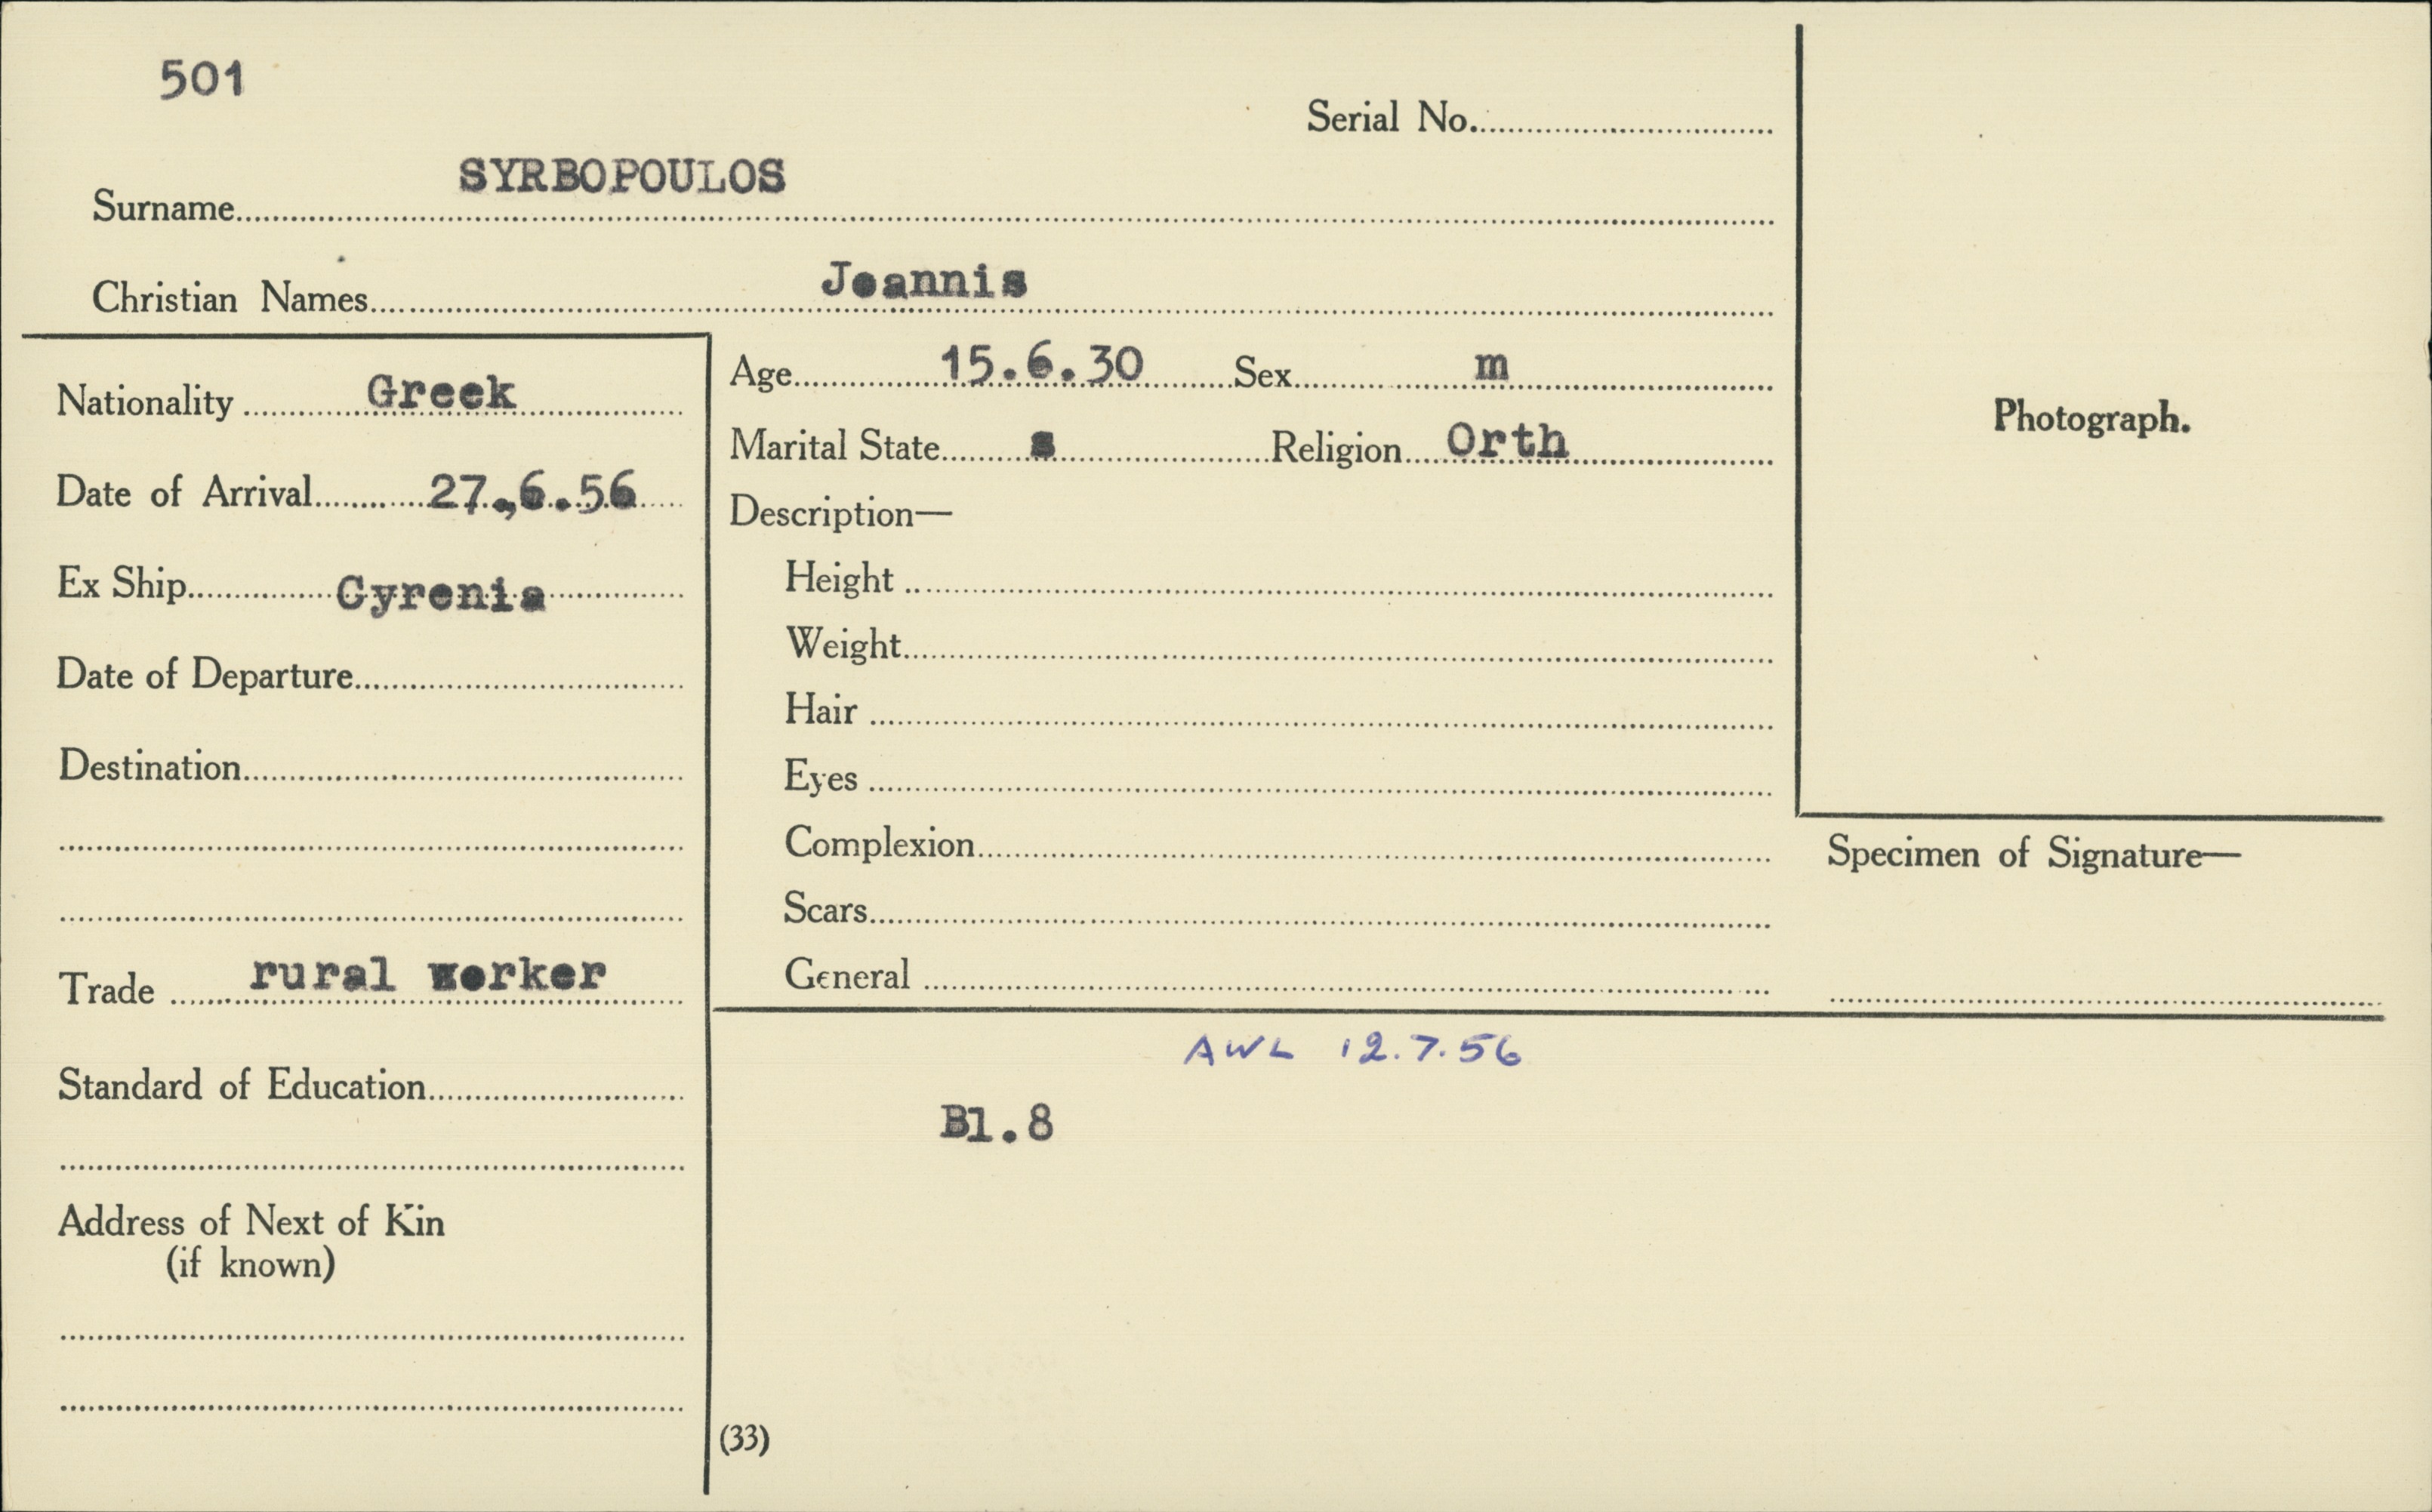 501
Serial No.
Surname SYRBOPOULOS
Christian Names Joannis
Nationality Greek
Date of Arrival 27.,6.56
Ex Ship Cyrenia
Date of Departure
Destination
Trade rural worker
Standard of Education
Address of Next of Kin
(if known)
Age 15.6.30 Sex m
Marital State s Religion Orth
Description—
Height
Weight
Hair
Eyes
Complexion
Scars
General
Photograph.
Specimen of Signature—
AWL 12.7.56
Bl.8
(33)